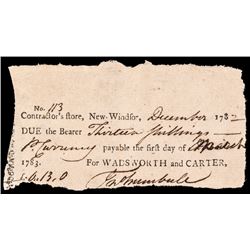 No. 113
Contractor's store, New-Windsor, December 178
DUE the Bearer Thirteen Shillings
Currency payable the first day of March
1783. For WADSWORTH and CARTER,
0. 13. 0 Trumbull